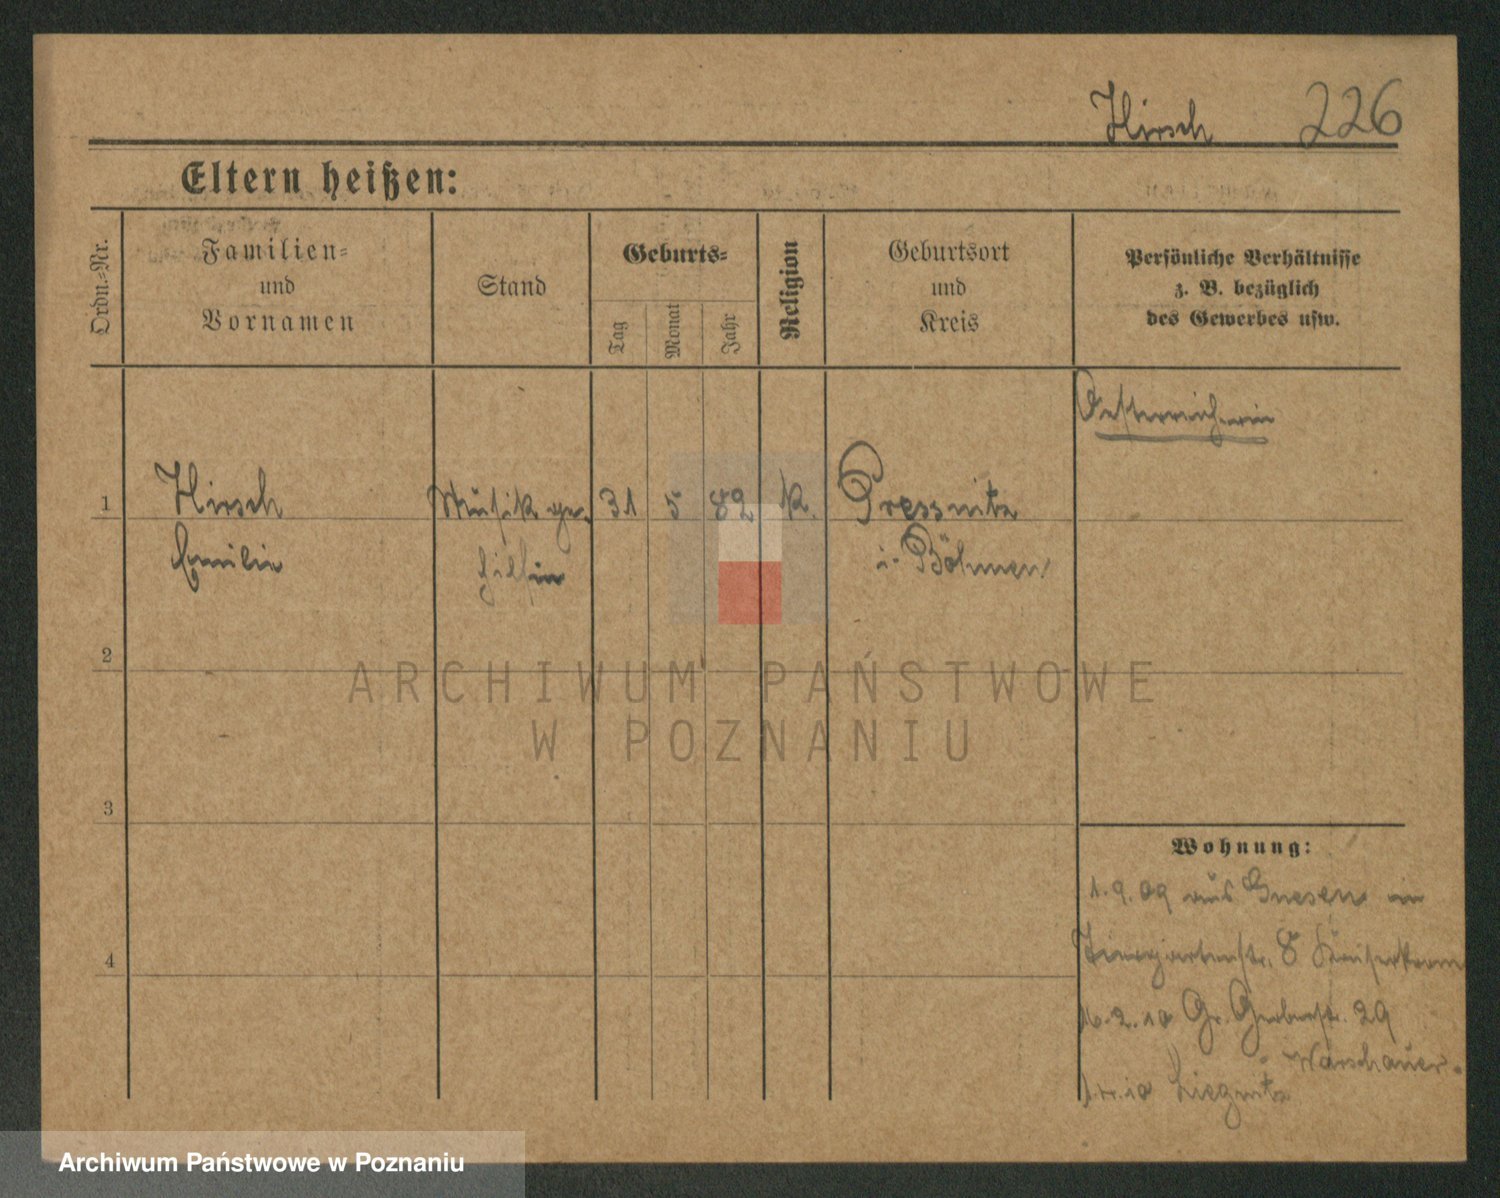 Hirsch 226
Eltern heißen:
Ordn.-Nr.
Familien-
und
Vornamen
Stand
Geburts-
Tag
Monat
Jahr
Religion
Geburtsort
und
Kreis
Persönliche Verhältnisse
z. B. bezüglich
des Gewerbes usw.
Oesterreicherin
1 Hirsch Musikge- 31 5 82 k. Pressnitz
Emilie hilfin i. Böhmen
2
3
4
Wohnung:
1.9.09 aus Gnesen in
Tiergartenstr. 8
16.2.10 Gr. Gerberstr. 29
Warschauer
10 Liegnitz
ARCHIWUM PAŃSTWOWE
W POZNANIU
Archiwum Państwowe w Poznaniu